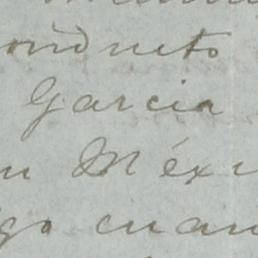 onducto
Garcia
n Méxi
go cuan